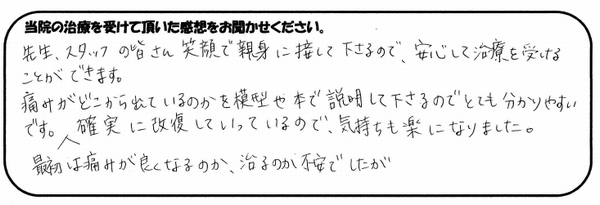 当院の治療を受けて頂いた感想をお聞かせください。
先生、スタッフの皆さん笑顔で親身に接して下さるので、安心して治療を受ける
ことができます。
痛みがどこから出ているのかを模型や本で説明して下さるのでとても分かりやすい
です。確実に改復していっているので、気持ちも楽になりました。
最初は痛みが良くなるのか、治るのか不安でしたが